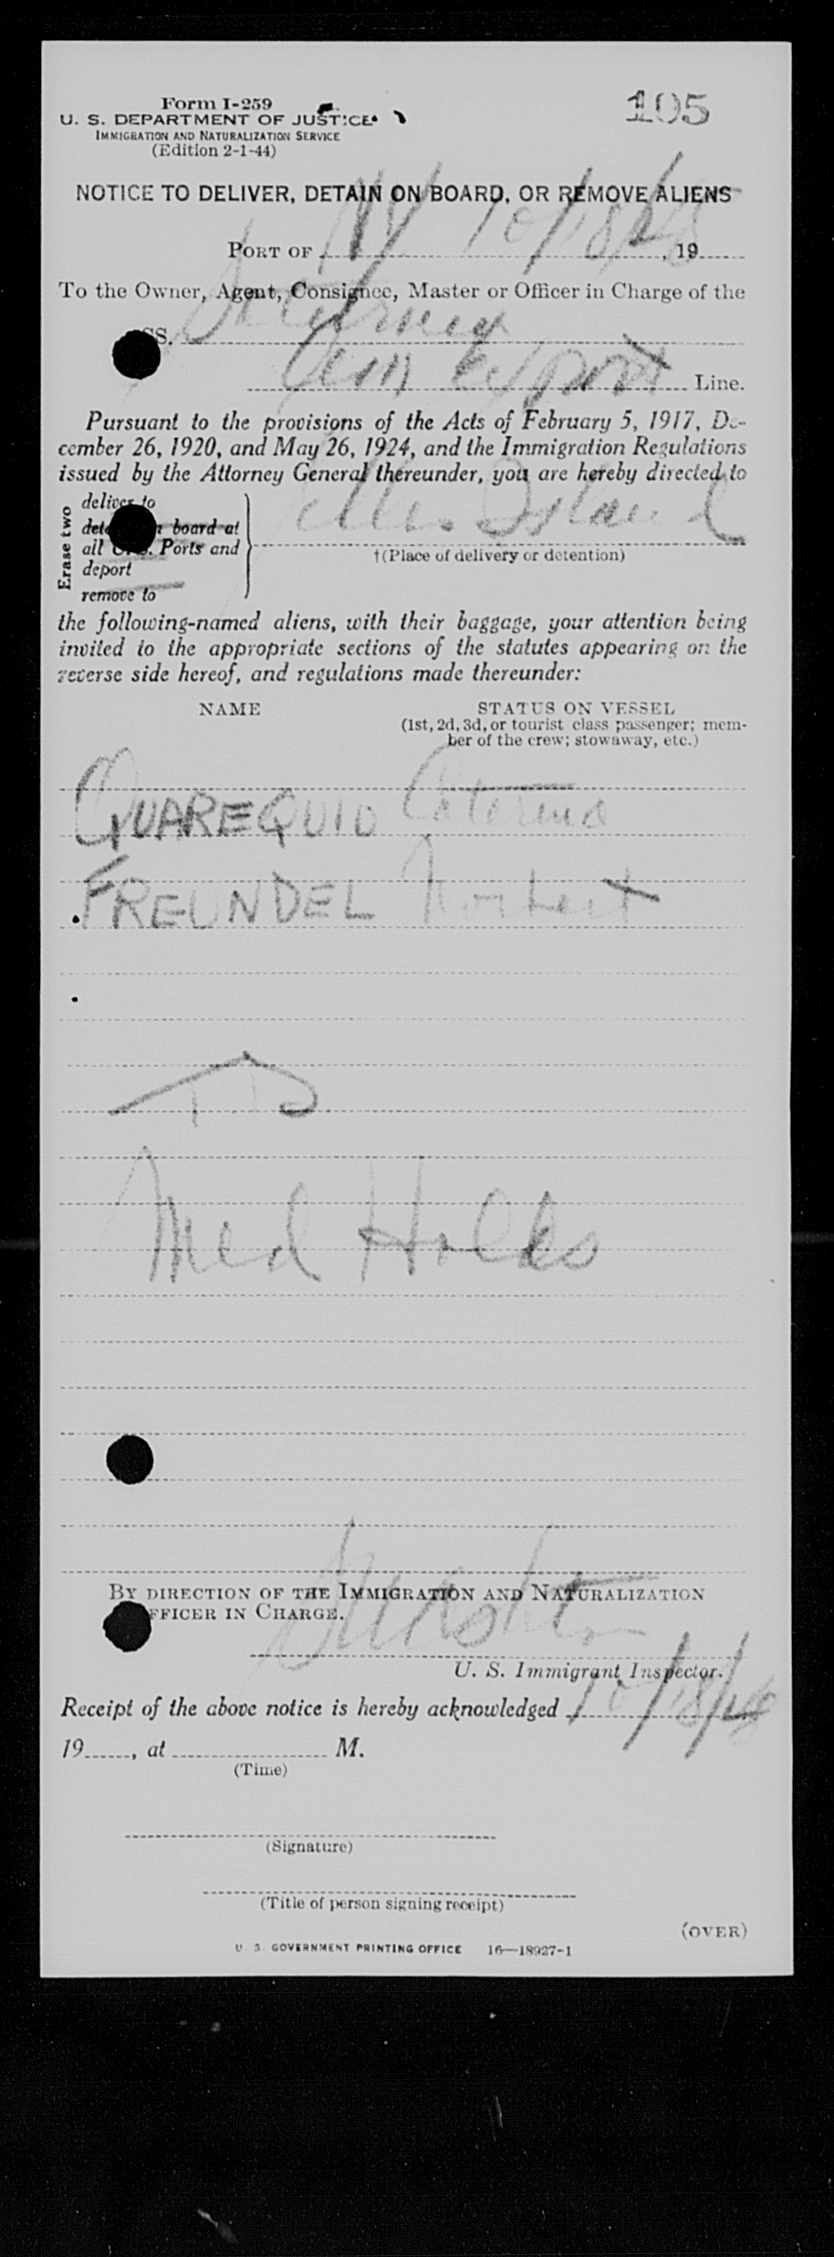 Form I-259
105
U. S. DEPARTMENT OF JUSTICE
IMMIGRATION AND NATURALIZATION SERVICE
(Edition 2-1-44)
NOTICE TO DELIVER, DETAIN ON BOARD, OR REMOVE ALIENS
PORT OF NY 10/18/48, 19
To the Owner, Agent, Consignee, Master or Officer in Charge of the
SS.
Am Export Line.
Pursuant to the provisions of the Acts of February 5, 1917, De-
cember 26, 1920, and May 26, 1924, and the Immigration Regulations
issued by the Attorney General thereunder, you are hereby directed to
Erase two
deliver to
detain on board at
all U. S. Ports and
deport
remove to
Ellis Island
†(Place of delivery or detention)
the following-named aliens, with their baggage, your attention being
invited to the appropriate sections of the statutes appearing on the
reverse side hereof, and regulations made thereunder:
NAME STATUS ON VESSEL
(1st, 2d, 3d, or tourist class passenger; mem-
ber of the crew; stowaway, etc.)
QUAREQUIO Caterina
FREUNDEL Norbert
Med Holds
BY DIRECTION OF THE IMMIGRATION AND NATURALIZATION
OFFICER IN CHARGE.
U. S. Immigrant Inspector.
Receipt of the above notice is hereby acknowledged 10/18/48
19, at M.
(Time)
(Signature)
(Title of person signing receipt)
(OVER)
U. S. GOVERNMENT PRINTING OFFICE 16—18927-1